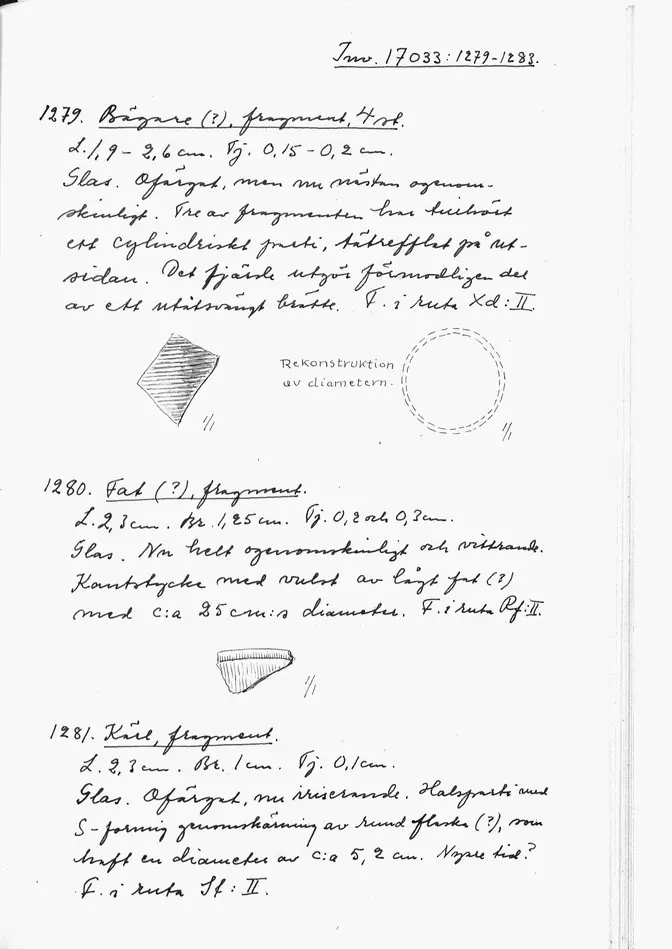 Inv. 17033:1279-1283.
1279. Bägare (?), fragment, 4 st.
L. 1,9 - 2,6 cm. Tj. 0,15 - 0,2 cm.
Glas. Ofärgat, men nu nästan ogenom-
skinligt. Tre av fragmenten har tillhört
ett cylindriskt parti, tätrefflat på ut-
sidan. Det fjärde utgör förmodligen del
av ett utåtsvängt brätte. F. i ruta Xd:II.
Rekonstruktion
av diametern.
1/1
1/1
1280. Fat (?), fragment.
L. 2,3 cm. Br. 1,25 cm. Tj. 0,2 och 0,3 cm.
Glas. Nu helt ogenomskinligt och vittrande.
Kantstycke med vulst av lågt fat (?)
med c:a 25 cm:s diameter. F. i ruta Rf:II.
1/1
1281. Kärl, fragment.
L. 2,3 cm. Br. 1 cm. Tj. 0,1 cm.
Glas. Ofärgat, nu iriserande. Halsparti med
S-formig genomskärning av rund flaska (?), som
haft en diameter av c:a 5,2 cm. Nyare tid?
F. i ruta Sf:II.